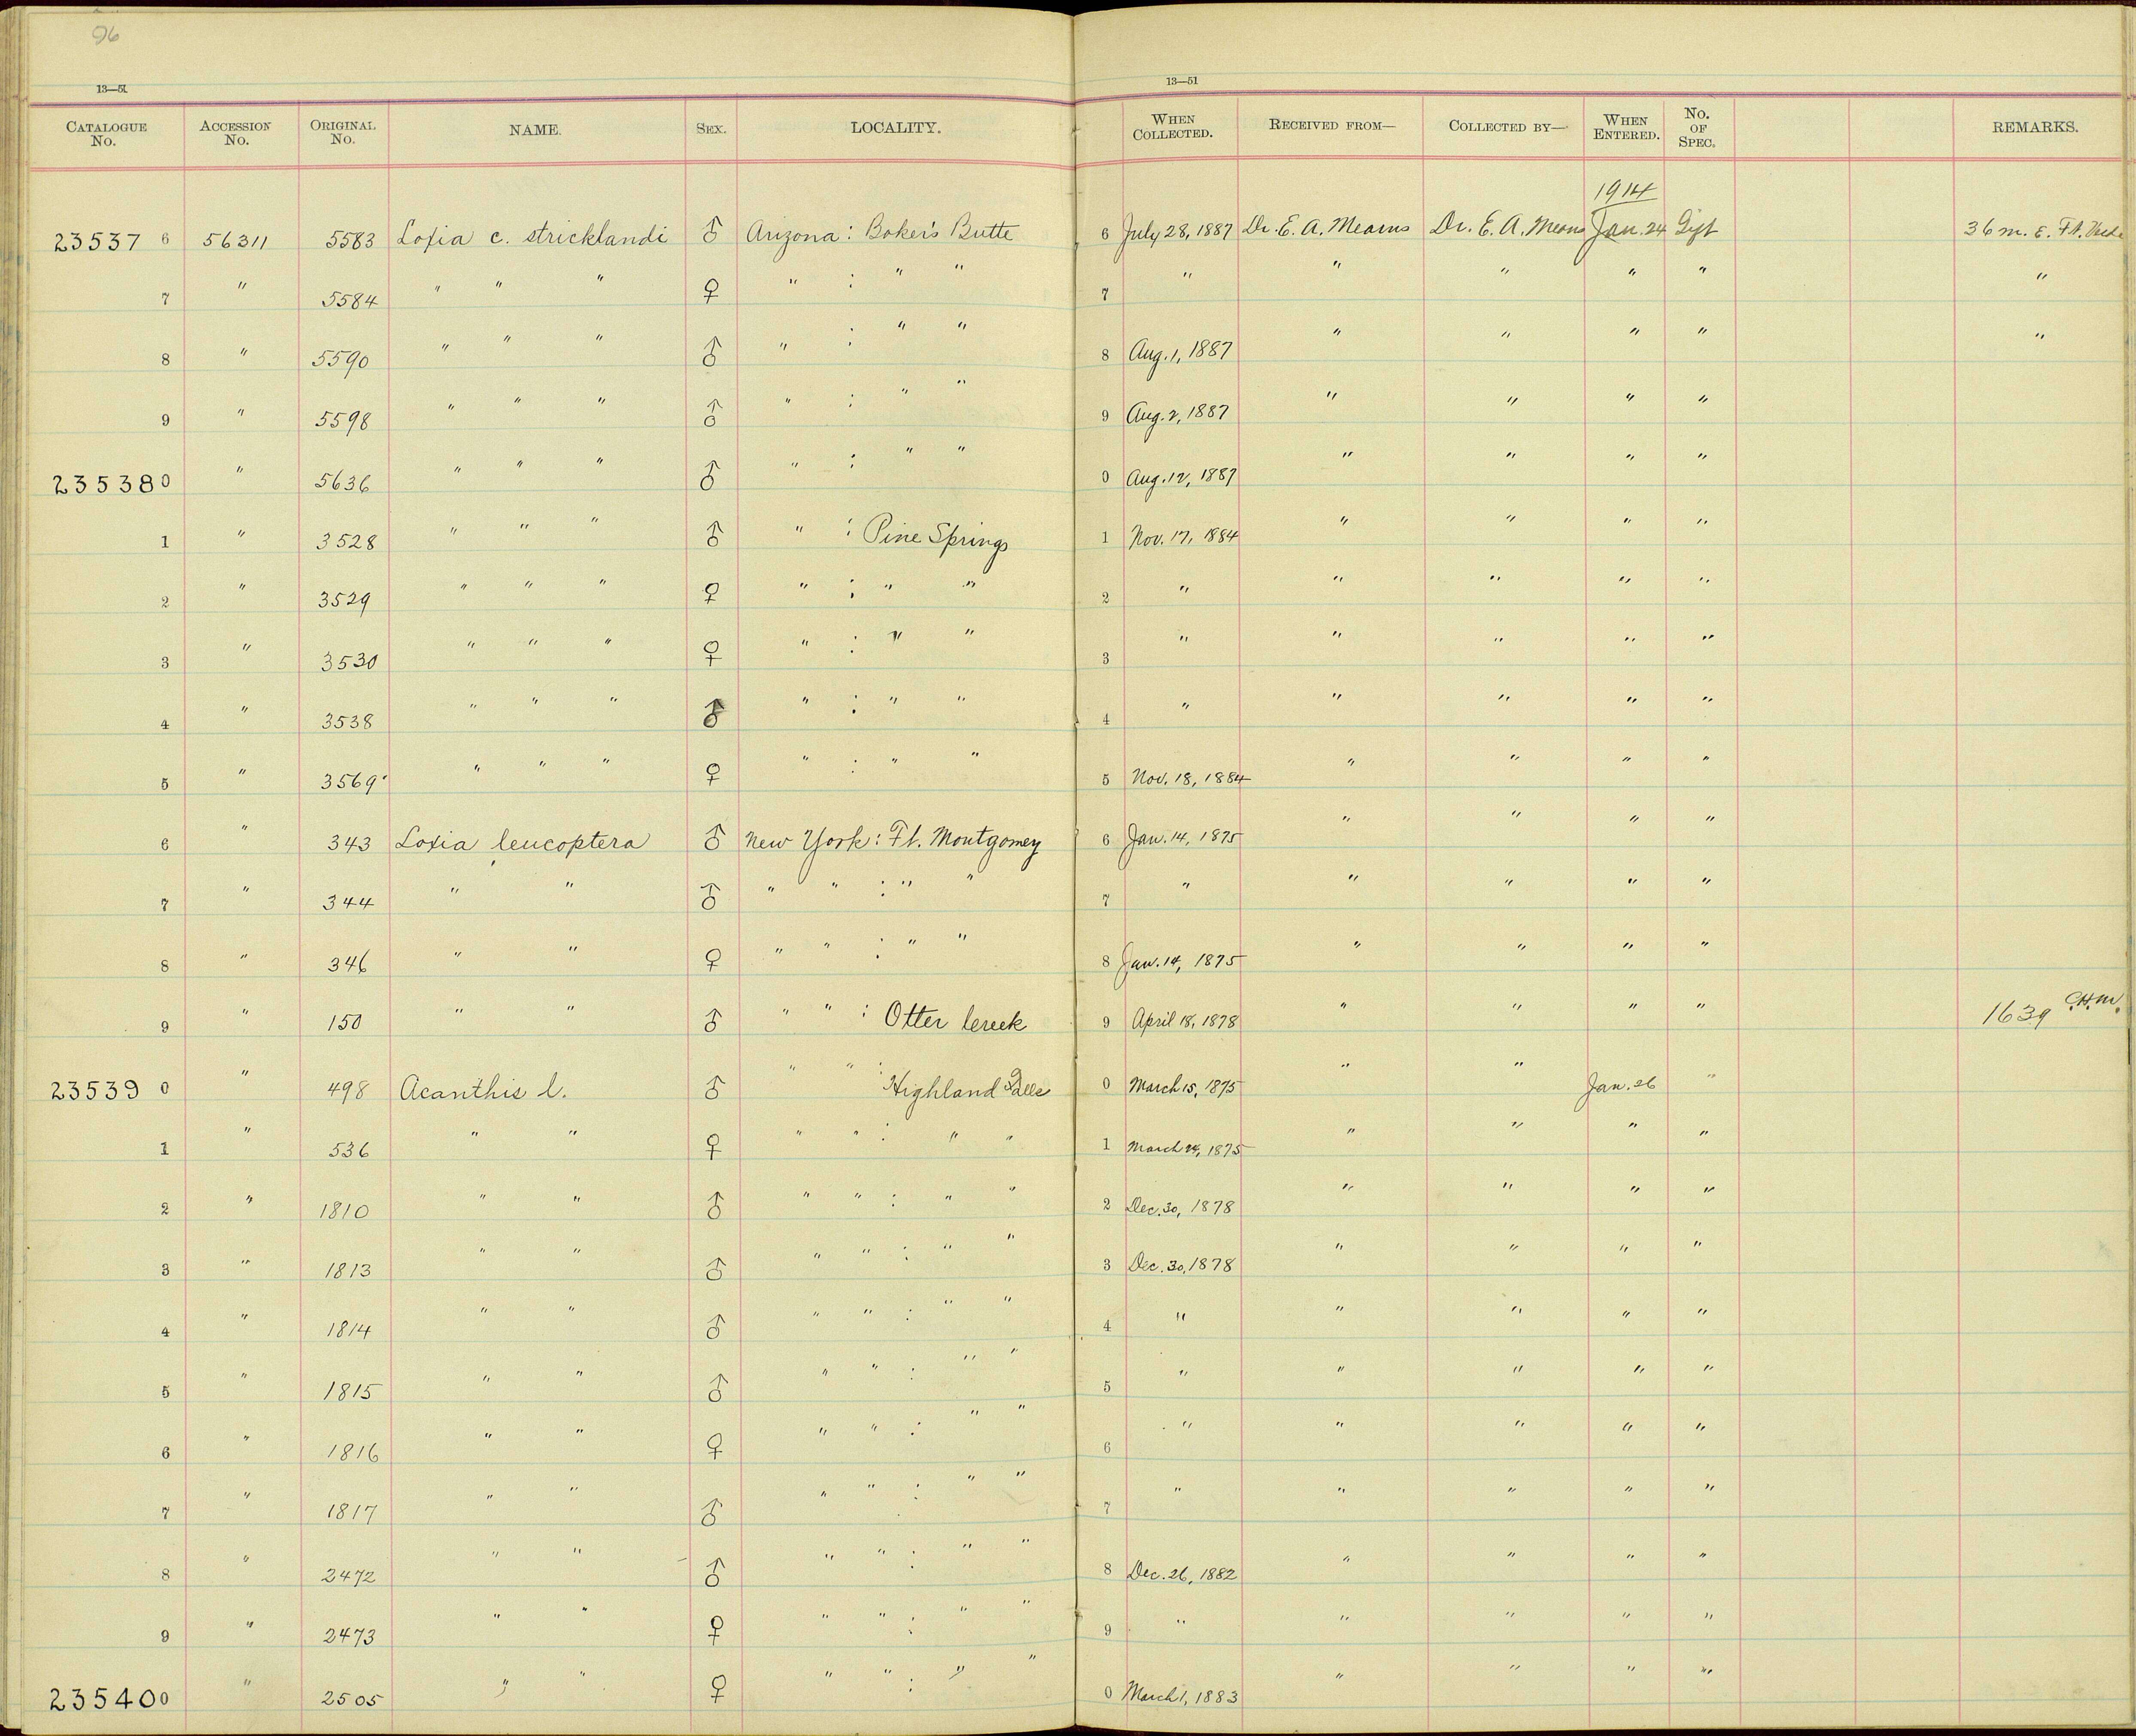 96
13—51 13—51
CATALOGUE No. ACCESSION No. ORIGINAL No. NAME. SEX. LOCALITY. WHEN COLLECTED. RECEIVED FROM— COLLECTED BY— WHEN ENTERED. No. OF SPEC. REMARKS.
1914
235376 56311 5583 Loxia c. stricklandi ♂ Arizona: Baker's Butte 6 July 28, 1887 Dr. E. A. Mearns Dr. E. A. Mearns Jan. 24 Gift 36 m. E. Ft. Verde
7 " 5584 " " " ♀ " : " " 7 " " " " " "
8 " 5590 " " " ♂ " : " " 8 Aug. 1, 1887 " " " " "
9 " 5598 " " " ♂ " : " " 9 Aug. 2, 1887 " " " "
235380 " 5636 " " " ♂ " : " " 0 Aug. 12, 1887 " " " "
1 " 3528 " " " ♂ " : Pine Springs 1 Nov. 17, 1884 " " " "
2 " 3529 " " " ♀ " : " " 2 " " " " "
3 " 3530 " " " ♀ " : " " 3 " " " " "
4 " 3538 " " " ♂ " : " " 4 " " " " "
5 " 3569 " " " ♀ " : " " 5 Nov. 18, 1884 " " " "
6 " 343 Loxia leucoptera ♂ New York: Ft. Montgomey 6 Jan. 14, 1875 " " " "
7 " 344 " " ♂ " " : " " 7 " " " " "
8 " 346 " " ♀ " " : " " 8 Jan. 14, 1875 " " " "
9 " 150 " " ♂ " " : Otter Creek 9 April 18, 1878 " " " " 1639 C.H.M.
235390 " 498 Acanthis l. ♂ " " : Highland Falls 0 March 15, 1875 " " Jan. 26 "
1 " 536 " " ♀ " " : " " 1 March 24, 1875 " " " "
2 " 1810 " " ♂ " " : " " 2 Dec. 30, 1878 " " " "
3 " 1813 " " ♂ " " : " " 3 Dec. 30, 1878 " " " "
4 " 1814 " " ♂ " " : " " 4 " " " " "
5 " 1815 " " ♂ " " : " " 5 " " " " "
6 " 1816 " " ♀ " " : " " 6 " " " " "
7 " 1817 " " ♂ " " : " " 7 " " " " "
8 " 2472 " " ♂ " " : " " 8 Dec. 26, 1882 " " " "
9 " 2473 " " ♀ " " : " " 9 " " " " "
235400 " 2505 " " ♀ " " : " " 0 March 1, 1883 " " " "